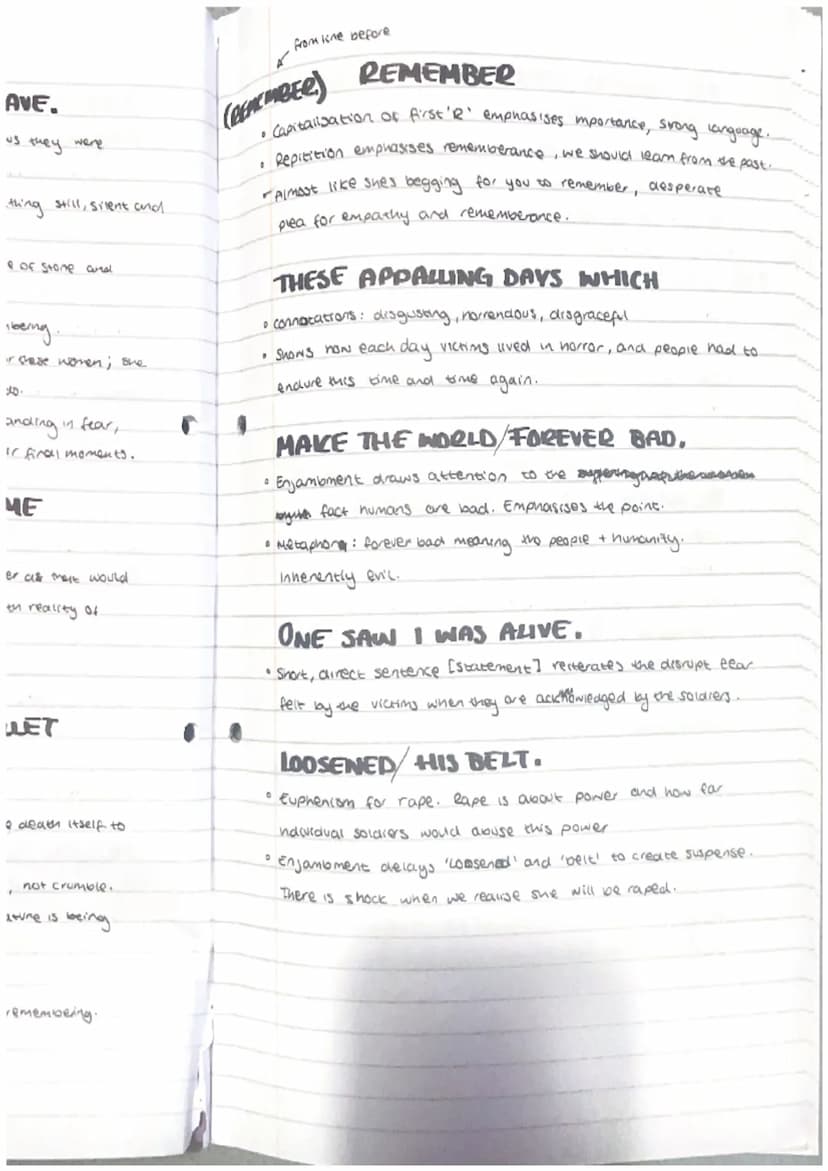 AVE.
us they were
thing still, silent and
e of stone and
being.
r these women; she
to.
anding in fear,
ir final moments.
ME
er as that would
th reality of
LLET
death itself to
, not crumble.
ature is being
remembering.
from line before
(REMEMBER) REMEMBER
• Capitalisation of first 'R' emphasises mportance, strong language.
• Repitition emphasises rememberance, we should learn from the past.
- Almost like shes begging for you to remember, desperate
plea for empathy and rememberance.
THESE APPALLING DAYS WHICH
• connotations: disgusting, horrendous, disgraceful
• Shows how each day victims lived in horror, and people had to
endure this time and time again.
MAKE THE WORLD/FOREVER BAD.
• Enjambment draws attention to the
fact humans are bad. Emphasises the point.
• Metaphor: forever bad meaning the people + humanity.
inherently evil.
ONE SAW I WAS ALIVE.
• Short, direct sentence [statement] reiterates the disrupt fear
felt by the victims when they are acknowledged by the soldiers.
LOOSENED/HIS BELT.
• Euphenism for rape. Rape is about power and how far
individual soldiers would abuse this power
• Enjambment delays 'loosened' and 'belt' to create suspense.
There is shock when we realise she will be raped.